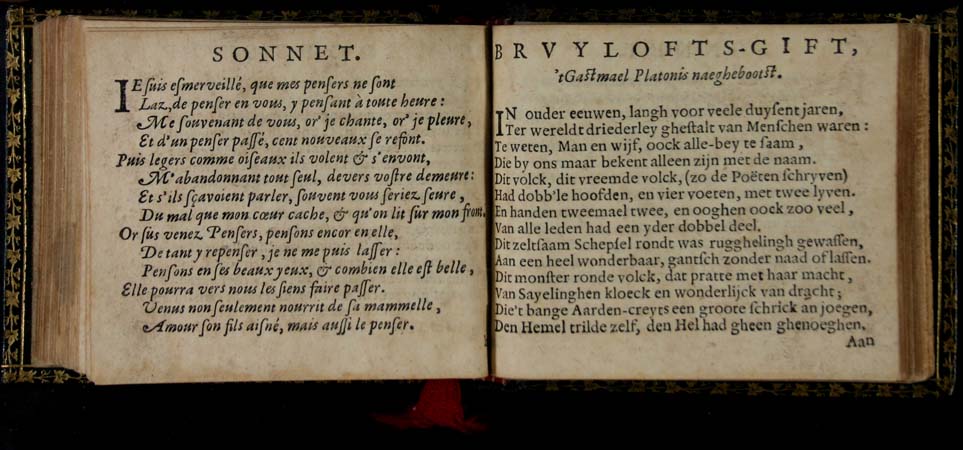 SONNET.
IE ſuis eſmerveillé, que mes penſers ne ſont
Laz, de penſer en vous, y penſant à toute heure :
Me ſouvenant de vous, or' je chante, or' je pleure,
Et d'un penſer paſſé, cent nouveaux ſe refont.
Puis legers comme oiſeaux ils volent & s'envont,
M'abandonnant tout ſeul, devers voſtre demeure :
Et s'ils ſçavoient parler, ſouvent vous ſeriez ſeure,
Du mal que mon cœur cache, & qu'on lit ſur mon front.
Or ſus venez Penſers, penſons encor en elle,
De tant y repenſer, je ne me puis laſſer :
Penſons en ſes beaux yeux, & combien elle eſt belle,
Elle pourra vers nous les ſiens faire paſſer.
Venus non ſeulement nourrit de ſa mammelle,
Amour ſon fils aiſné, mais auſſi le penſer.
BRVYLOFTS-GIFT,
'tGaſtmael Platonis naeghebootſt.
IN ouder eeuwen, langh voor veele duyſent jaren,
Ter wereldt driederley gheſtalt van Menſchen waren :
Te weten, Man en wijf, oock alle-bey te ſaam,
Die by ons maar bekent alleen zijn met de naam.
Dit volck, dit vreemde volck, (zo de Poëten ſchryven)
Had dobb'le hoofden, en vier voeten, met twee lyven.
En handen tweemael twee, en ooghen oock zoo veel,
Van alle leden had een yder dobbel deel.
Dit zeltſaam Schepſel rondt was rugghelingh gewaſſen,
Aan een heel wonderbaar, gantſch zonder naad of laſſen.
Dit monſter ronde volck, dat pratte met haar macht,
Van Sayelinghen kloeck en wonderlijck van dracht;
Die't bange Aarden-creyts een groote ſchrick an joegen,
Den Hemel trilde zelf, den Hel had gheen ghenoeghen.
Aan